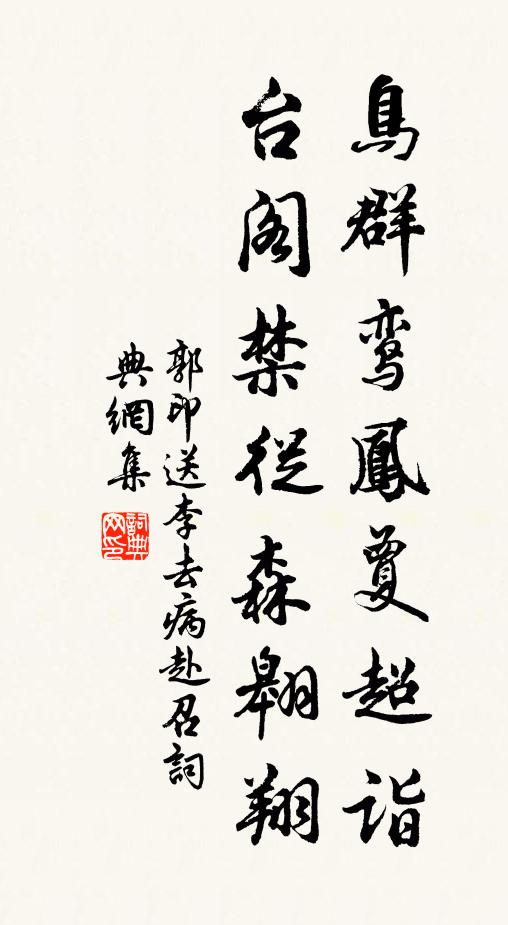 鳥群鸾鳳夐超詣
台阁禁從森翱翔
郭印送李去病赴召詞
典網集
詞典网印